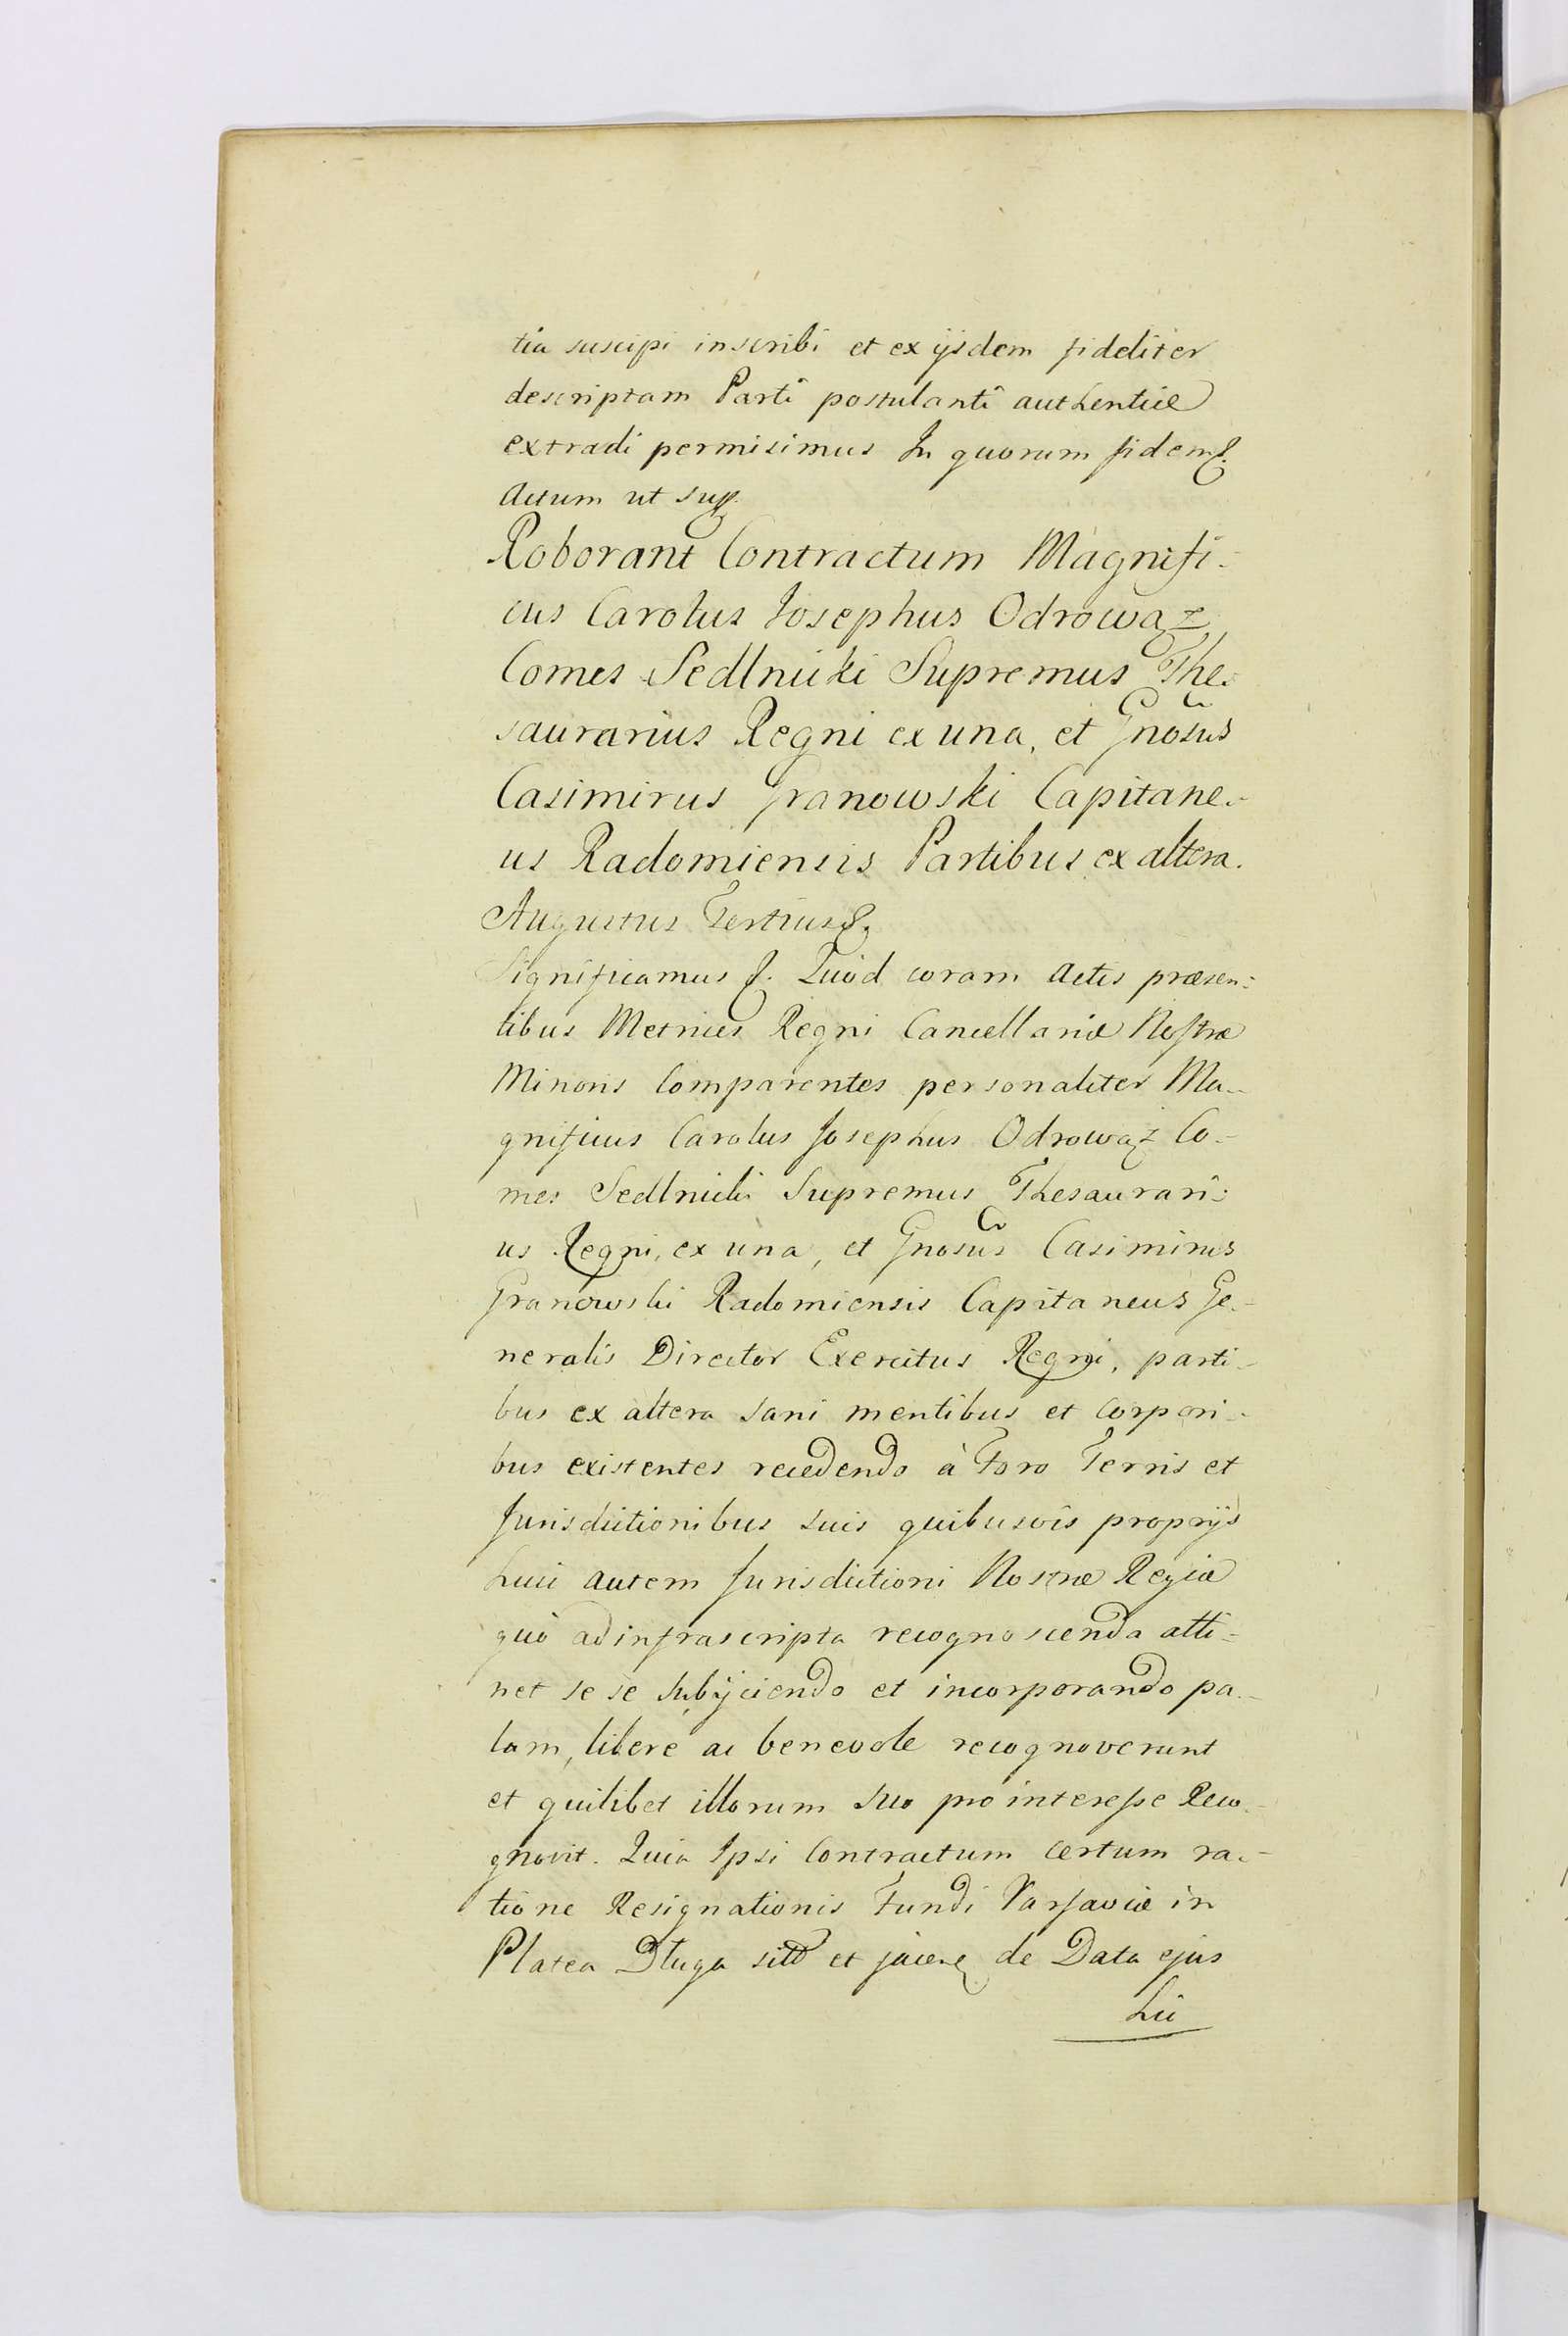 tia suscipi inscribi et ex ijsdem fideliter
descriptam Parti postulanti authenticæ
extradi permisimus In quorum fidem &.
Actum ut sup.
Roborant Contractum Magnifi-
cus Carolus Josephus Odrowąz
Comes Sedlnicki Supremus The-
saurarius Regni ex una, et Gnosus
Casimirus Granowski Capitane-
us Radomiensis Partibus ex altera.
Augustus Tertius &.
Significamus &. Quod coram Actis præsen-
tibus Metrices Regni Cancellariæ Nostræ
Minoris Comparentes personaliter Ma-
gnificus Carolus Josephus Odrowąż Co-
mes Sedlnicki Supremus Thesaurari-
us Regni, ex una, et Gnosus Casimirus
Granowski Radomiensis Capitaneus Ge-
neralis Director Exercitus Regni, parti-
bus ex altera sani mentibus et corpori-
bus existentes recedendo à Foro Terris et
Jurisdictionibus suis quibusvis proprijs
huic autem Jurisdictioni Nostræ Regiæ
quò ad infrascripta recognoscenda atti-
net se se subijciendo et incorporando pa-
lam, libere ac benevole recognoverunt
et quilibet illorum suo pro interesse Reco-
gnovit. Quia Ipsi Contractum certum ra-
tione Resignationis Fundi Varsaviæ in
Platea Długa siti et jacen de Data ejus
hu